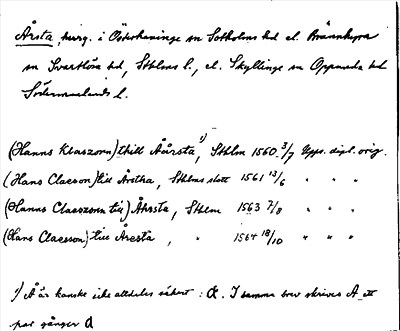 Årsta, herrg. i Österhaninge sn Sotholms hd el. Brännkyrka
sn Svartlösa hd, Sthlms l., el. Skyllinge sn Oppunda hd
Södermanlands l.
(Hanns Klaszonn) thill Åårsta ¹), Sthlm 1560 3/7 Upps. dipl. orig.
(Hans Claeson) till Årstha, Sthlms slott 1561 13/6 " " "
(Hanns Claeszonn till) Åhrsta, Sthlm 1563 7/8 " " "
(Hans Claesson) till Åresta, " 1564 18/10 " " "
¹) Å är kanske icke alldeles säkert: a. I samma brev skrives A ett
par gånger a